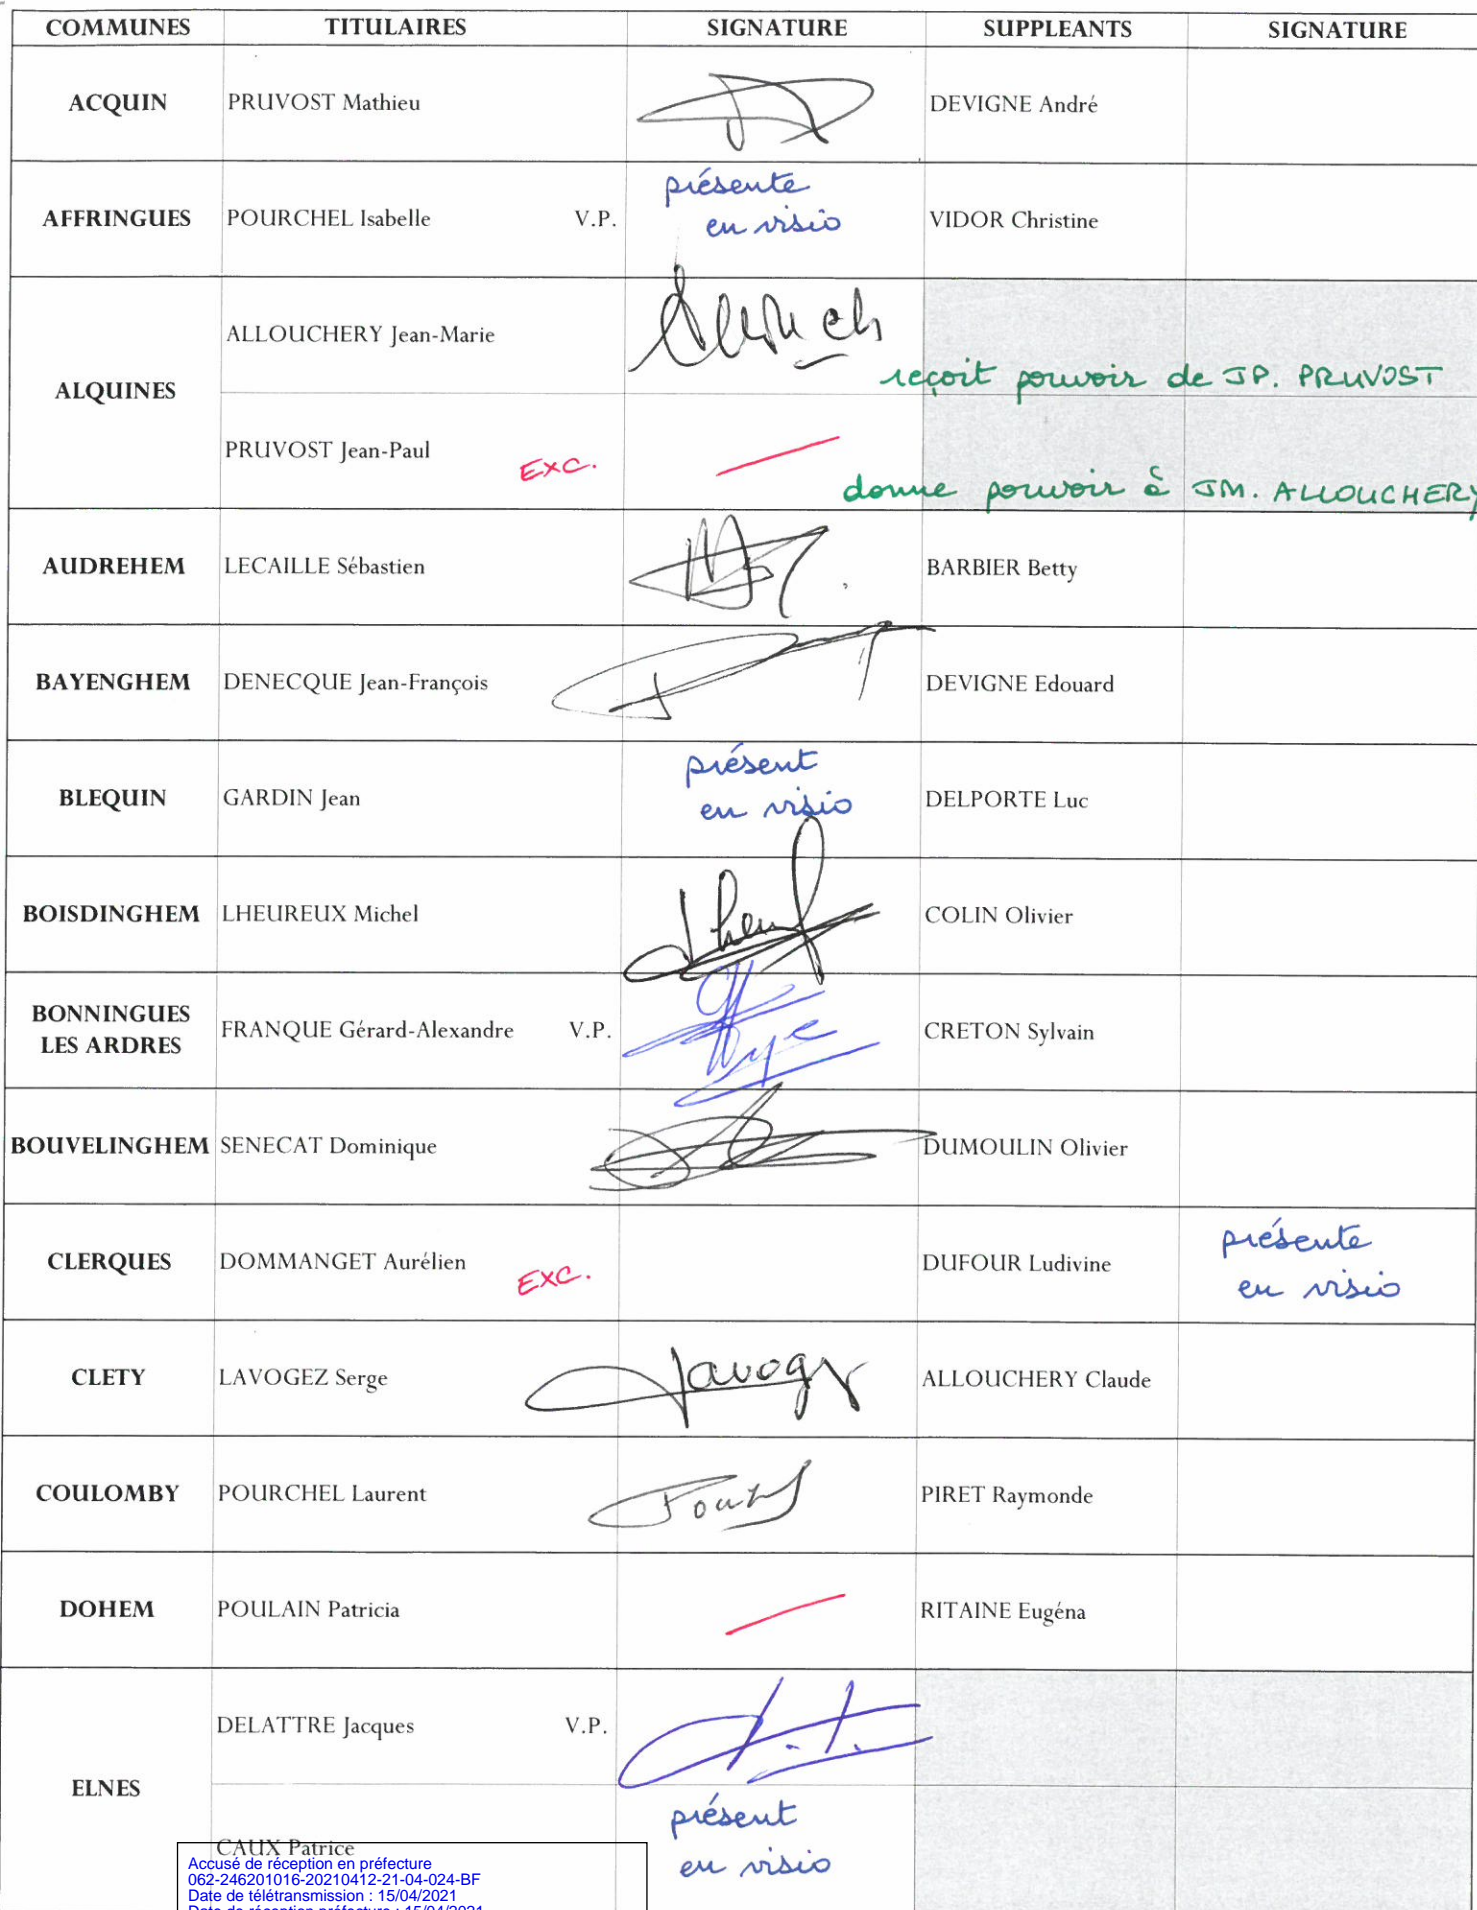 COMMUNES TITULAIRES SIGNATURE SUPPLEANTS SIGNATURE
ACQUIN PRUVOST Mathieu DEVIGNE André
AFFRINGUES POURCHEL Isabelle V.P. présente en visio VIDOR Christine
ALQUINES
ALLOUCHERY Jean-Marie
reçoit pouvoir de JP. PRUVOST
PRUVOST Jean-Paul Exc.
donne pouvoir à JM. ALLOUCHERY
AUDREHEM LECAILLE Sébastien BARBIER Betty
BAYENGHEM DENECQUE Jean-François DEVIGNE Edouard
BLEQUIN GARDIN Jean présent en visio DELPORTE Luc
BOISDINGHEM LHEUREUX Michel COLIN Olivier
BONNINGUES
LES ARDRES FRANQUE Gérard-Alexandre V.P. CRETON Sylvain
BOUVELINGHEM SENECAT Dominique DUMOULIN Olivier
CLERQUES DOMMANGET Aurélien Exc. DUFOUR Ludivine présente en visio
CLETY LAVOGEZ Serge ALLOUCHERY Claude
COULOMBY POURCHEL Laurent PIRET Raymonde
DOHEM POULAIN Patricia RITAINE Eugéna
ELNES
DELATTRE Jacques V.P.
CAUX Patrice présent en visio
Accusé de réception en préfecture
062-246201016-20210412-21-04-024-BF
Date de télétransmission : 15/04/2021
Date de réception préfecture : 15/04/2021